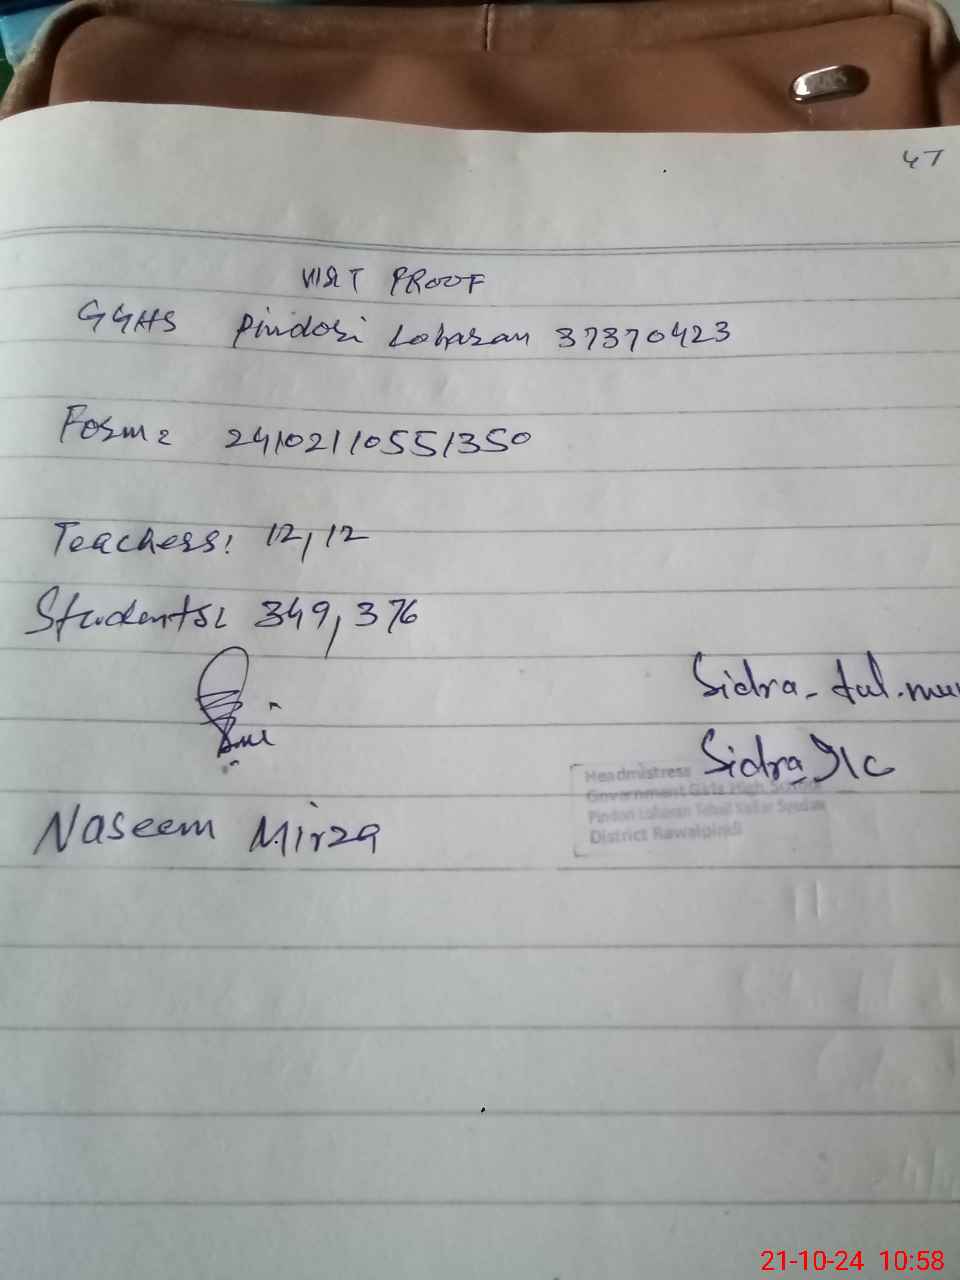 47
VISIT PROOF
GGHS Pindori Loharan 37370423
Form: 24102110551350
Teachers: 12, 12
Students: 349, 376
Sidra-tul-mun
Sidra I/c
Headmistress
Government Girls High School
Pindori Loharan Tehsil Kallar Syedan
District Rawalpindi
Naseem Mirza
21-10-24 10:58